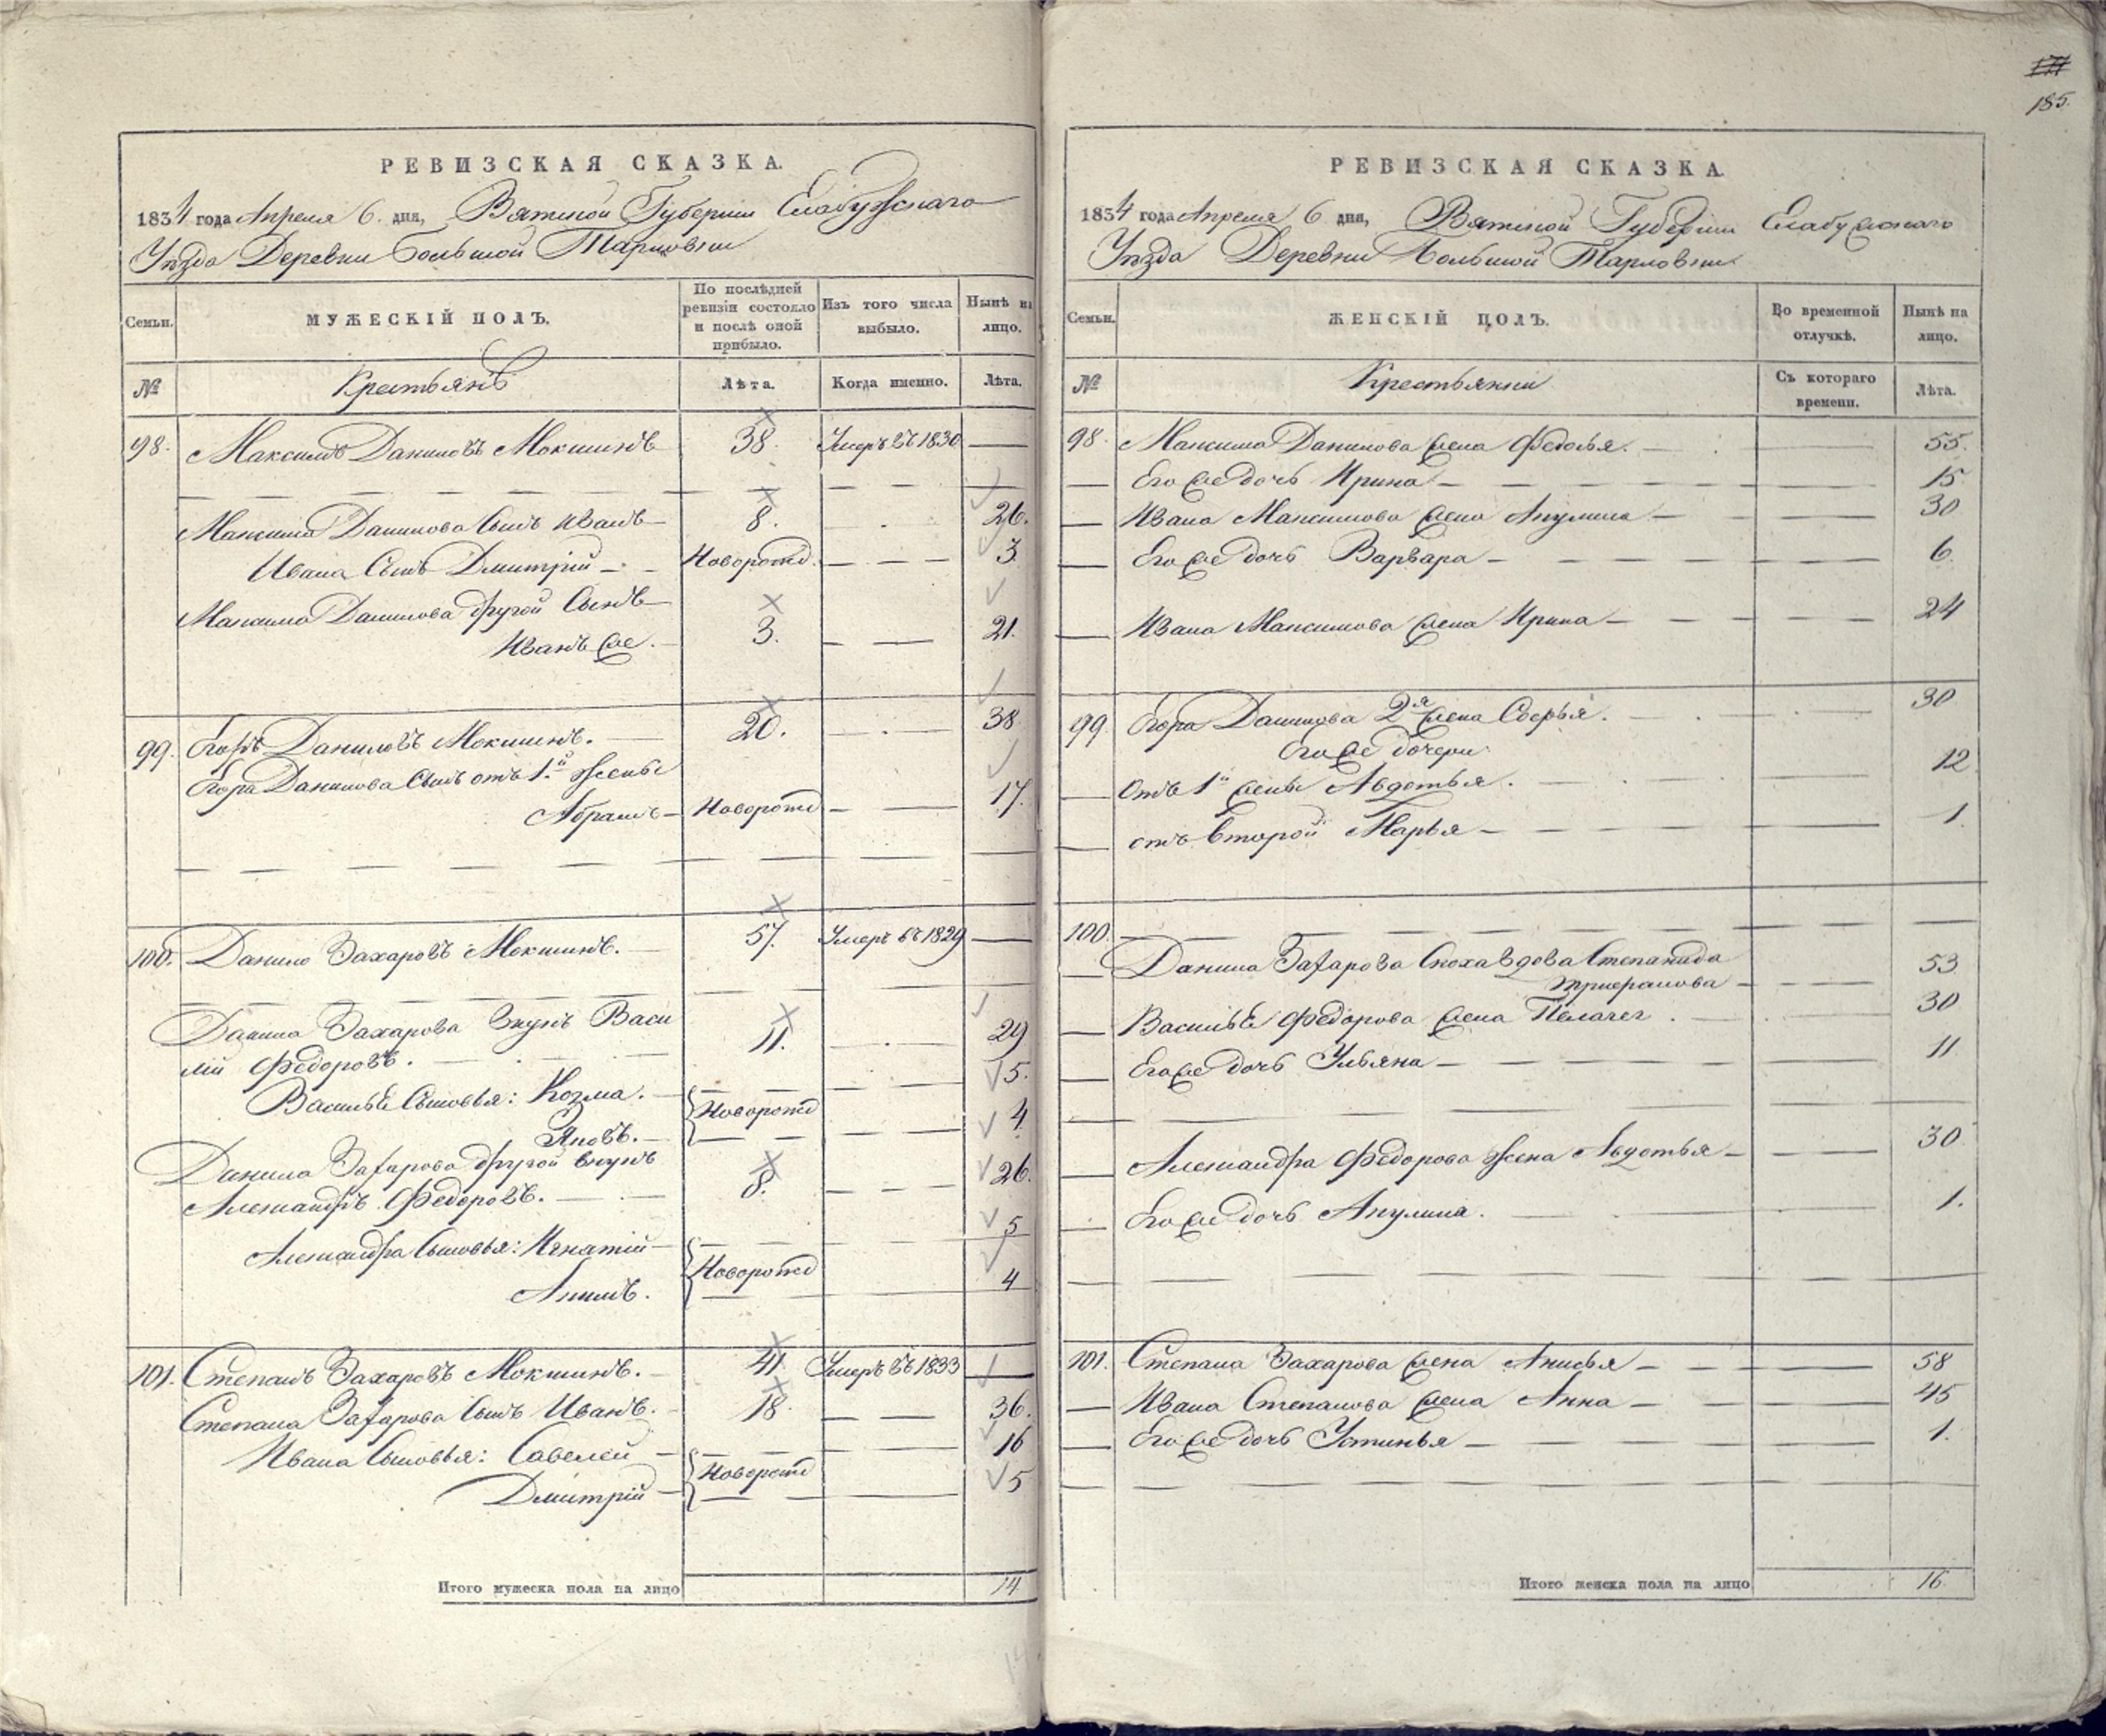 РЕВИЗСКАЯ СКАЗКА.
1834 года Апреля 6. дня, Вятской Губернии Елабужскаго
Уѣзда Деревни Большой Тарловки
Семьи.
МУЖЕСКІЙ ПОЛЪ.
По послѣдней ревизіи состояло и послѣ оной прибыло.
Изъ того числа выбыло.
Нынѣ на лицо.
№
Крестьянъ
Лѣта.
Когда именно.
Лѣта.
98. Максимъ Даниловъ Мокшинъ 38. Умеръ въ 1830
Максима Данилова Сынъ Иванъ 8. 26.
Ивана Сынъ Дмитрій Новорожд. 3.
Максима Данилова другой Сынъ
Иванъ же. 3. 21.
99. Егоръ Даниловъ Мокшинъ. 20. 38
Егора Данилова Сынъ отъ 1й жены
Абрамъ Новорожд 17.
100. Данило Захаровъ Мокшинъ. 57. Умеръ въ 1829
Данила Захарова Внукъ Васи
лій Федоровъ. 11. 29
Василья Сыновья: Козма. 5.
Новорожд
Яковъ. 4.
Данила Захарова другой внукъ
Александръ Федоровъ. 8. 26.
Александра Сыновья: Игнатій 5
Новорожд
Акимъ. 4
101. Степанъ Захаровъ Мокшинъ. 41. Умеръ въ 1833
Степана Захарова Сынъ Иванъ. 18. 36.
Ивана Сыновья: Савелей 16
Новорожд
Дмитрій 5
Итого мужеска пола на лицо 14.
185.
РЕВИЗСКАЯ СКАЗКА.
1834 года Апреля 6 дня, Вятской Губерніи Елабужскаго
Уѣзда Деревни Большой Тарловки
Семьи.
ЖЕНСКІЙ ПОЛЪ.
Во временной отлучкѣ.
Нынѣ на лицо.
№
Крестьянки
Съ котораго времени.
Лѣта.
98. Максима Данилова жена Федосья. 55.
Его же дочь Ирина 15
Ивана Максимова жена Акулина 30
Его же дочь Варвара 6.
Ивана Максимова жена Ирина 24
99. Егора Данилова 2я жена 30
Его же дочери
отъ 1й жены Авдотья. 12
отъ второй Марья 1.
100.
Данила Захарова Сноха вдова Степанида 53
Василья Федорова жена Пелагея. 30
Его же дочь Ульяна 11
Александра Федорова жена Авдотья 30
Его же дочь Акулина. 1.
101. Степана Захарова жена Анисья 58
Ивана Степанова жена Анна 45
Его же дочь Устинья 1.
Итого женска пола на лицо 16